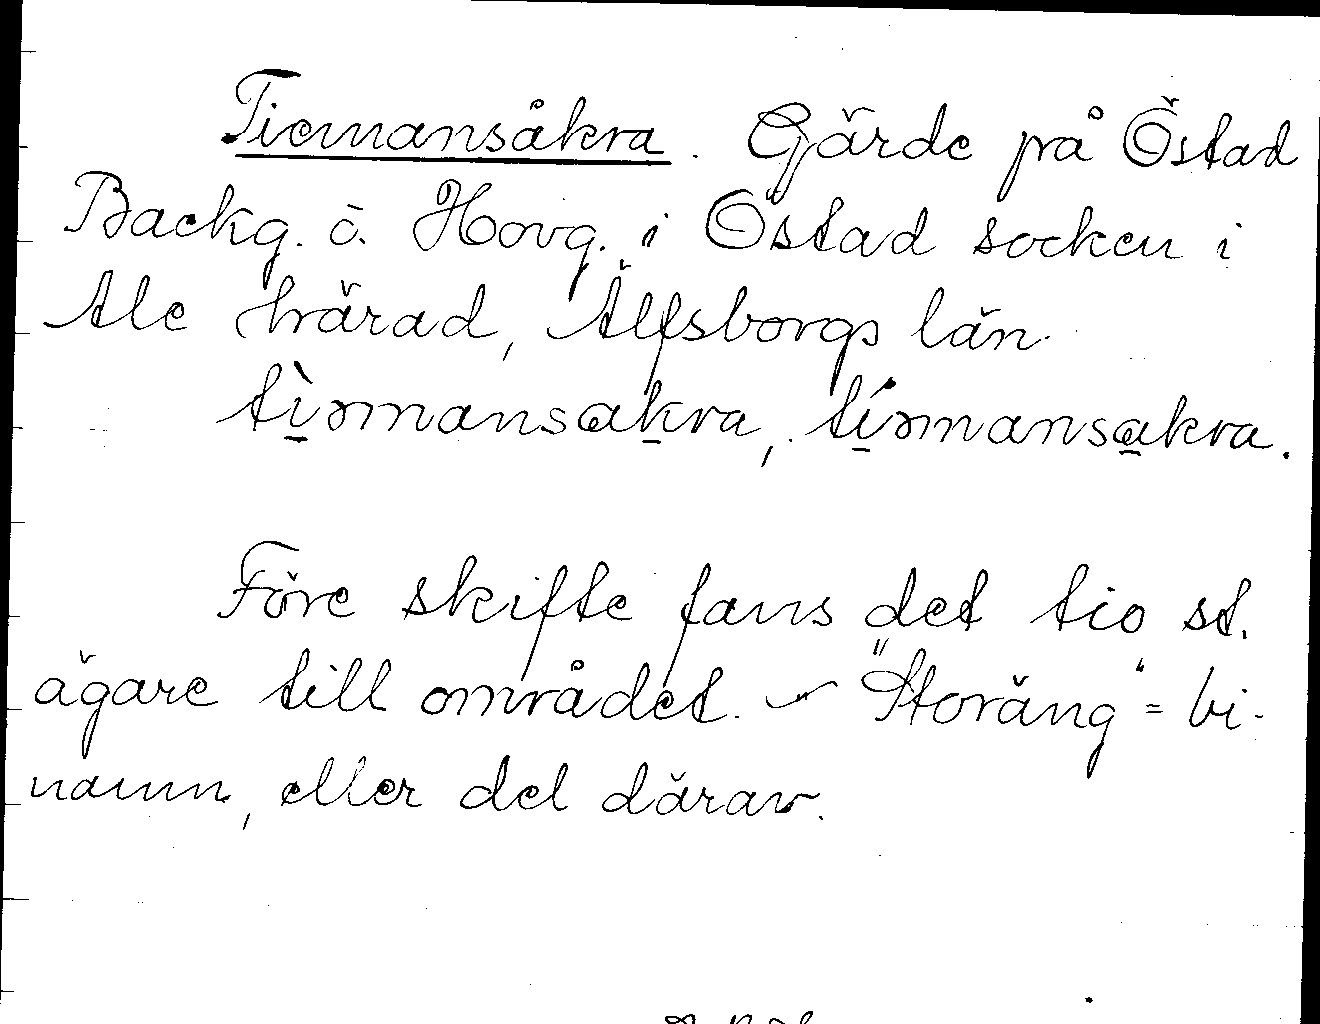 Tiemansåkra. Gärde på Östad
Backg. o. Hovg. i Östad socken i
Ale härad, Älfsborgs län.
tìọmansakra, tíọmansakra.
Före skifte fans det tio st.
ägare till området. — "Storäng" = bi-
namn, eller del därav.